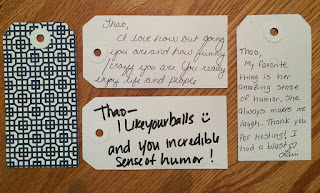 Thao,
I love how out going
you are and how funny
/crazy you are. You really
enjoy life and people
Thao—
I like your balls ☺
and you incredible
sense of humor!
Thao,
My favorite
thing is her
amazing sense
of humor. She
always makes me
laugh. Thank you
for hosting! I
had a blast ♡